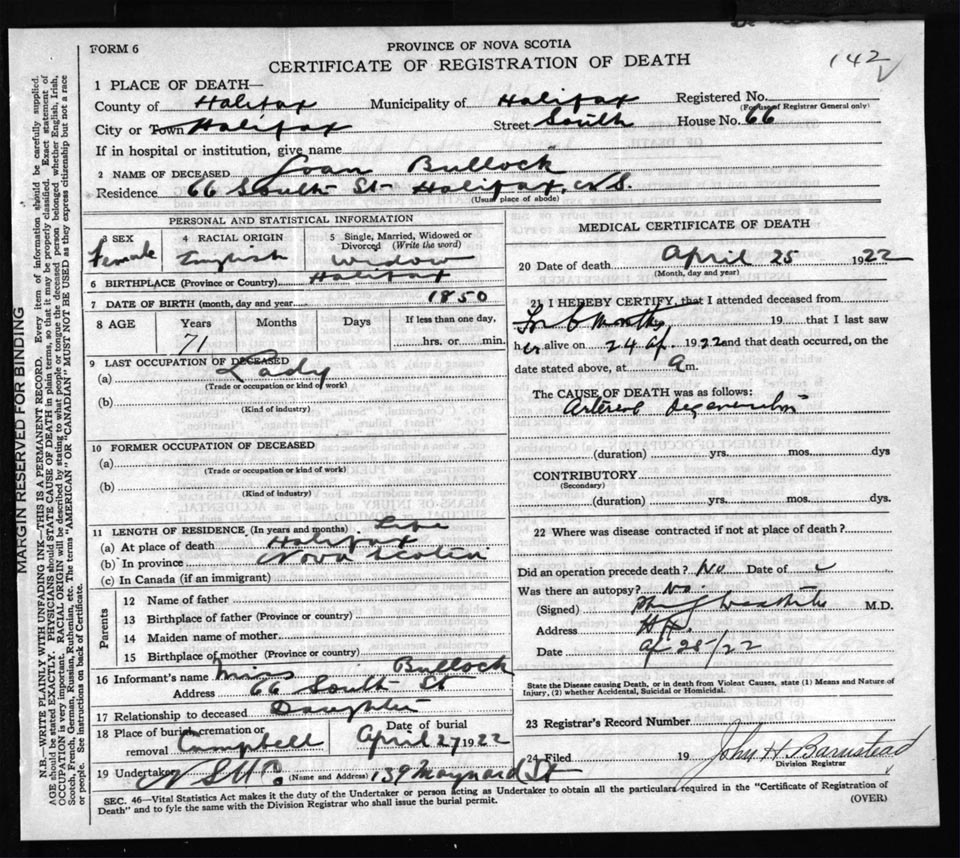 FORM 6
PROVINCE OF NOVA SCOTIA
CERTIFICATE OF REGISTRATION OF DEATH
142
1 PLACE OF DEATH—
County of Halifax Municipality of Halifax Registered No.
(For use of Registrar General only)
City or Town Halifax Street South House No. 66
If in hospital or institution, give name
2 NAME OF DECEASED Joan Bullock
Residence 66 South St Halifax, N.S.
(Usual place of abode)
PERSONAL AND STATISTICAL INFORMATION
3 SEX 4 RACIAL ORIGIN 5 Single, Married, Widowed or Divorced (Write the word)
Female English Widow
6 BIRTHPLACE (Province or Country) Halifax
7 DATE OF BIRTH (month, day and year) 1850
8 AGE Years Months Days If less than one day,
71 hrs. or min.
9 LAST OCCUPATION OF DECEASED
(a) Lady
(Trade or occupation or kind of work)
(b)
(Kind of industry)
10 FORMER OCCUPATION OF DECEASED
(a)
(Trade or occupation or kind of work)
(b)
(Kind of industry)
11 LENGTH OF RESIDENCE (In years and months) Life
(a) At place of death Halifax
(b) In province Nova Scotia
(c) In Canada (if an immigrant)
Parents
12 Name of father
13 Birthplace of father (Province or country)
14 Maiden name of mother
15 Birthplace of mother (Province or country)
16 Informant's name Miss Bullock
Address 66 South St
17 Relationship to deceased Daughter
18 Place of burial, cremation or removal Campbell Date of burial April 27 1922
19 Undertaker (Name and Address) 139 Maynard St
MEDICAL CERTIFICATE OF DEATH
20 Date of death April 25 1922
(Month, day and year)
21 I HEREBY CERTIFY, that I attended deceased from
for 6 months, 19 that I last saw
her alive on 24 Ap. 1922 and that death occurred, on the
date stated above, at 9 m.
The CAUSE OF DEATH was as follows:
Arterial degeneration
(duration) yrs. mos. dys
CONTRIBUTORY
(Secondary)
(duration) yrs. mos. dys.
22 Where was disease contracted if not at place of death?
Did an operation precede death? No Date of
Was there an autopsy? No.
(Signed) M.D.
Address
Date Ap 25/22
State the Disease causing Death, or in death from Violent Causes, state (1) Means and Nature of Injury, (2) whether Accidental, Suicidal or Homicidal.
23 Registrar's Record Number
24 Filed 19 John H. Barnstead
Division Registrar
SEC. 46—Vital Statistics Act makes it the duty of the Undertaker or person acting as Undertaker to obtain all the particulars required in the "Certificate of Registration of
Death" and to fyle the same with the Division Registrar who shall issue the burial permit.
(OVER)
MARGIN RESERVED FOR BINDING
N.B.—WRITE PLAINLY WITH UNFADING INK—THIS IS A PERMANENT RECORD. Every item of information should be carefully supplied.
AGE should be stated EXACTLY. PHYSICIANS should STATE CAUSE OF DEATH in plain terms, so that it may be properly classified. Exact statement of
OCCUPATION is very important. RACIAL ORIGIN will be described by stating to what people or tongue the deceased person belonged whether English, Irish,
Scotch, French, German, Russian, Ruthenian, etc. The terms "AMERICAN" OR "CANADIAN" MUST NOT BE USED as they express citizenship but not a race
or people. See instructions on back of Certificate.